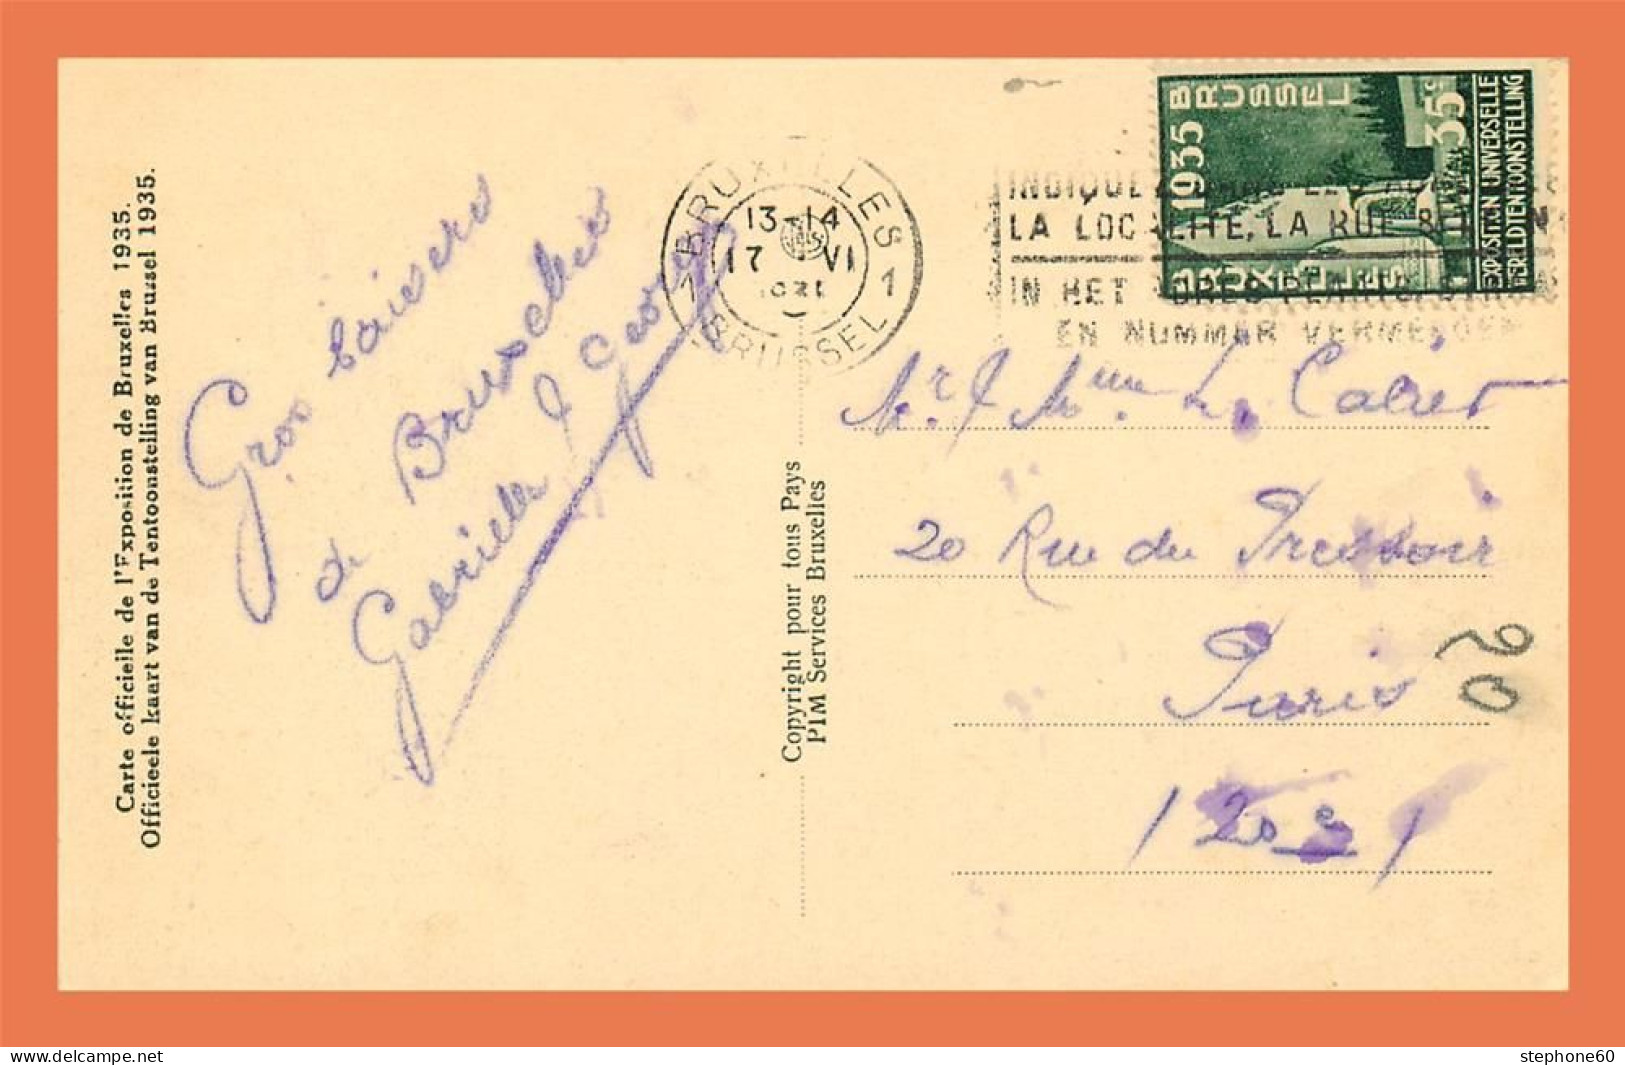 Carte officielle de l'Exposition de Bruxelles 1935.
Officieele kaart van de Tentoonstelling van Brussel 1935.
Gros baisers
de Bruxelles
Gabrielle & Georges
Copyright pour tous Pays
PIM Services Bruxelles
1 BRUXELLES 1
13-14
17 VI
BRUSSEL
INDIQUEZ DANS LES
LA LOCALITE, LA RUE
IN HET ADRES
EN NUMMER VERMELDEN
1935 BRUSSEL
BRUXELLES
35c
EXPOSITION UNIVERSELLE
WERELDTENTOONSTELLING
Mr & Mme L.
20 Rue du Pressoir
Paris
(20e)
20
www.delcampe.net
stephone60